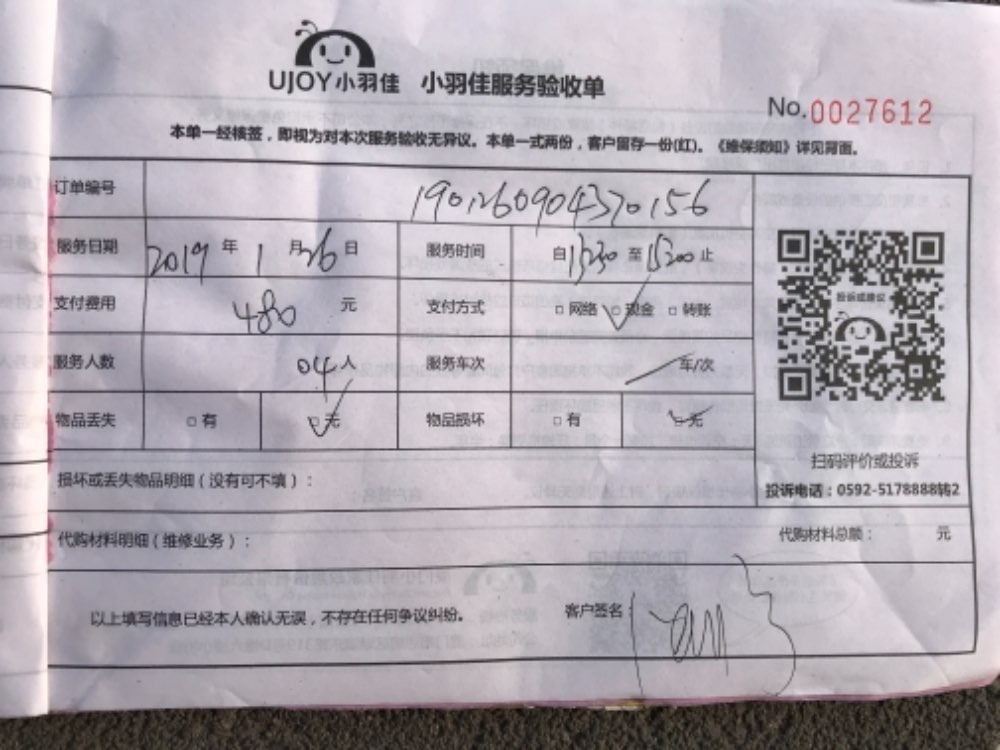 UJOY小羽佳 小羽佳服务验收单
No.0027612
本单一经核签，即视为对本次服务验收无异议。本单一式两份，客户留存一份(红)。《维保须知》详见背面。
订单编号 1901260904370156
服务日期 2019 年 1 月 26 日 服务时间 自 13:30 至 15:00 止
支付费用 480 元 支付方式 □网络 □现金 □转账
服务人数 04 人 服务车次 车/次
物品丢失 □有 □无 物品损坏 □有 □无
投诉或建议
扫码评价或投诉
投诉电话：0592-5178888转2
损坏或丢失物品明细（没有可不填）：
代购材料明细（维修业务）： 代购材料总额： 元
以上填写信息已经本人确认无误，不存在任何争议纠纷。 客户签名：